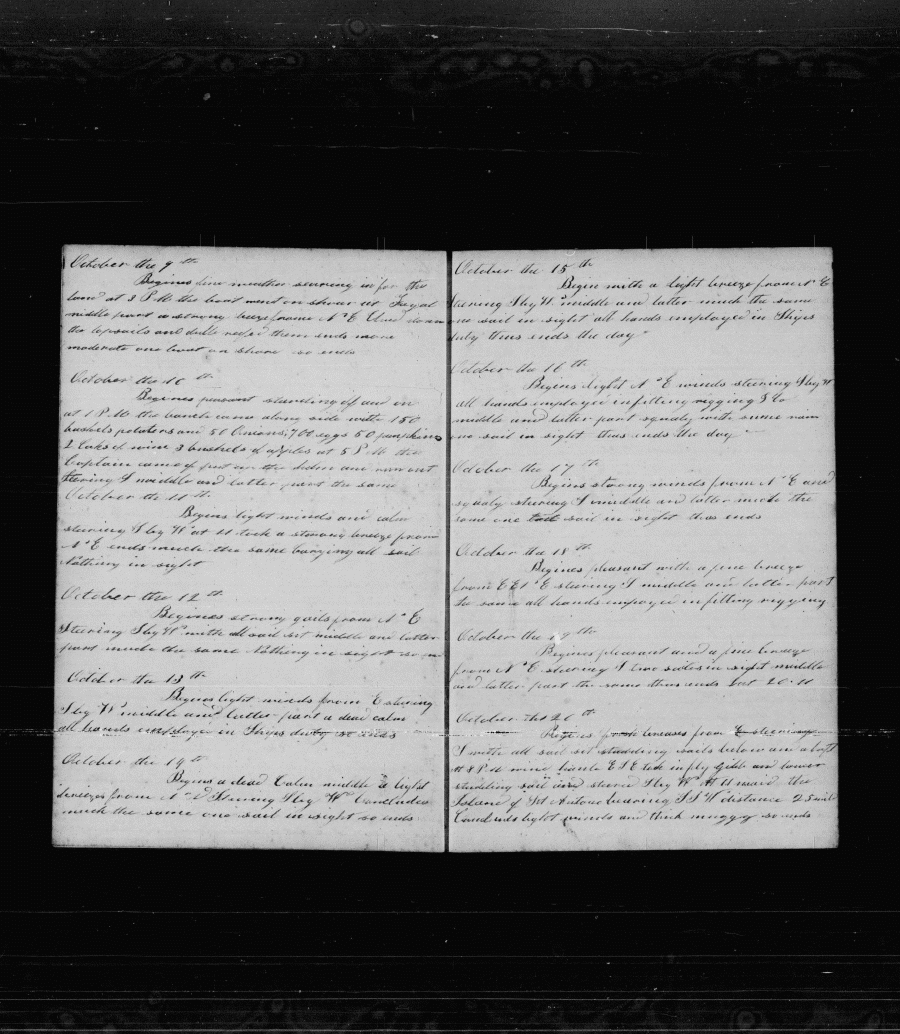 October the 9th
Begines fine weather steering in for the
land at 3 P M the boat went on shour at Fayal
middle part a strong breeze from N E Clued down
the topsails and duble reefed them ends more
moderate one boat on shore so ends
October the 10th
Begines pleasant standing off and on
at 1 P M the boat came along side with 150
baskets potatoes and 50 Onions, 700 eggs 50 pumpkins
2 Casks of wine 3 buskets of apples at 5 P M the
Captain came of put on the and went
Stering S middle and latter part the same
October the 11th
Begins light winds and calm
steering S by W at 11 took a strong breeze from
N E ends much the same carrying all sail
Nothing in sight
October the 12th
Begines strong gails from N E
Steering S by W with all sail set middle and latter
part much the same Nothing in sight so
October the 13th
Begines light winds from E stering
S by W middle and latter part a dead calm
all hands employe in Ships duty so ends
October the 14th
Begins a dead Calm middle a light
breeze from N Steering S by W Concludes
much the same one sail in sight so ends
October the 15th
Begin with a light breeze from N E
Steering S by W middle and latter much the same
one sail in sight all hands employed in Ships
duty thus ends the day
October the 16th
Begines light N E winds steering S by W
all hands employed in fitting rigging &c
middle and latter part squaly with some rain
one sail in sight thus ends the day
October the 17th
Begins strong winds from N E and
squaly stering S middle and latter much the
same one sail in sight thus ends
October the 18th
Begines pleasant with a fine breeze
from E steering S middle and latter part
the same all hands employed in fitting rigging
October the 19th
Begines pleasant and a fine breeze
from N E steering S two sailes in sight middle
and latter part the same thus ends Lat 20.11
October the 20th
Begines fresh breases from E steering
S with all sail set studding sails below and aloft
at 8 P M wind E S E took in fly gib and lower
studding sail and steered S by W At made the
Island of St Antone bearing S S W distance 25 mile
Concluds light winds and thick muggy so ends